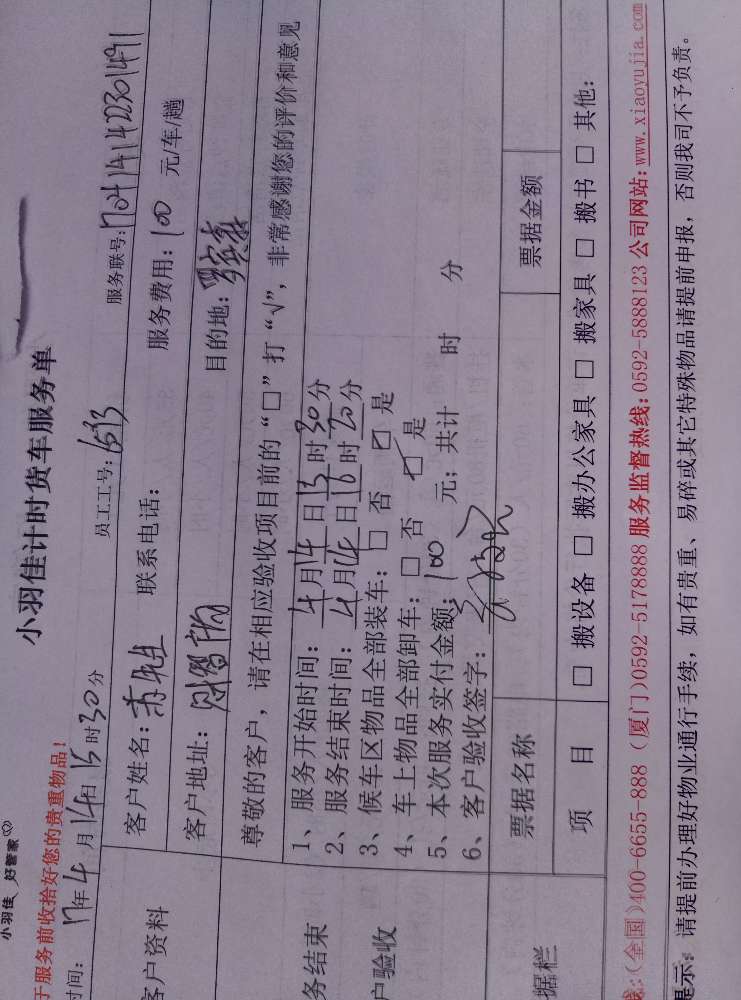 小羽佳 好管家
小羽佳计时货车服务单
于服务前收拾好您的贵重物品！
时间: 17年4月14日15时30分 员工工号: 1633 服务联号: 170414142301491
客户资料
客户姓名: 先生 联系电话: 服务费用: 100 元/车/趟
客户地址: 目的地:
尊敬的客户，请在相应验收项目前的“□”打“√”，非常感谢您的评价和意见
务结束
户验收
1、服务开始时间: 4月14日15时30分
2、服务结束时间: 4月14日16时20分
3、候车区物品全部装车: □ 否 ☑ 是
4、车上物品全部卸车: □ 否 ☑ 是
5、本次服务实付金额: 100 元; 共计 时 分
6、客户验收签字:
据栏
票据名称 票据金额
项 目 □ 搬设备 □ 搬办公家具 □ 搬家具 □ 搬书 □ 其他:
线:(全国)400-6655-888 (厦门)0592-5178888 服务监督热线:0592-5888123 公司网站:www.xiaoyujia.com
提示: 请提前办理好物业通行手续，如有贵重、易碎或其它特殊物品请提前申报，否则我司不予负责。